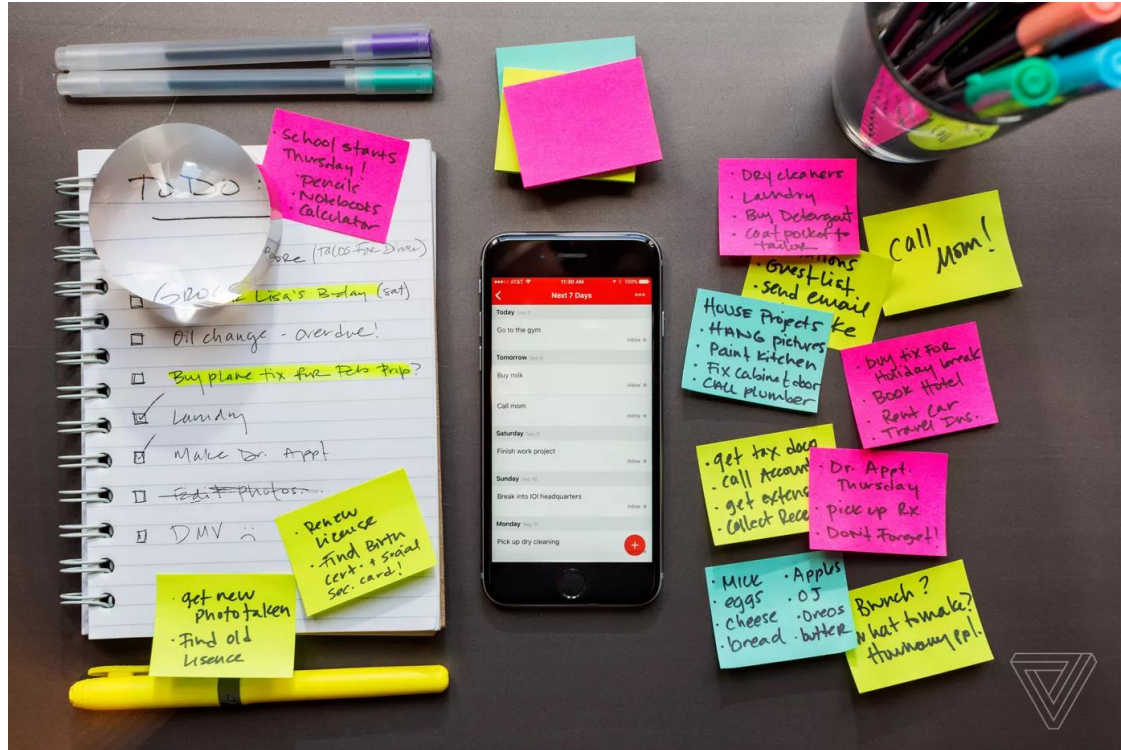 TO DO:
(TACOS FOR Dinner)
Lisa's B-day (sat)
Oil change - overdue!
Buy plane tix for Feb Trip?
Laundry
Make Dr. Appt
Edit photos
DMV ☹
· School starts
Thursday!
· Pencils
· Notebooks
· Calculator
· Renew
License
· Find Birth
cert. + social
sec. card!
· get new
Photo taken
· Find old
Lisence
AT&T
11:30 AM
100%
Next 7 Days
Today Sep 7
Go to the gym
Inbox
Tomorrow Sep 8
Buy milk
Inbox
Call mom
Inbox
Saturday Sep 9
Finish work project
Inbox
Sunday Sep 10
Break into IOI headquarters
Inbox
Monday Sep 11
Pick up dry cleaning
+
· Dry cleaners
· Laundry
· Buy Detergent
· Coat pocket to
tailor
call
Mom!
· Guest list
· send email
House Projects
· HANG pictures
· Paint kitchen
· Fix cabinet door
· CALL plumber
· buy tix FOR
Holiday break
· Book Hotel
· Rent Car
· Travel Ins.
· get tax docs
· call Account
· get extens
· collect Rece
· Dr. Appt.
Thursday
· pick up Rx
· Don't Forget!!
· Milk · Apples
· eggs · OJ
· cheese · Oreos
· bread · butter
Brunch?
what to make?
How many ppl.